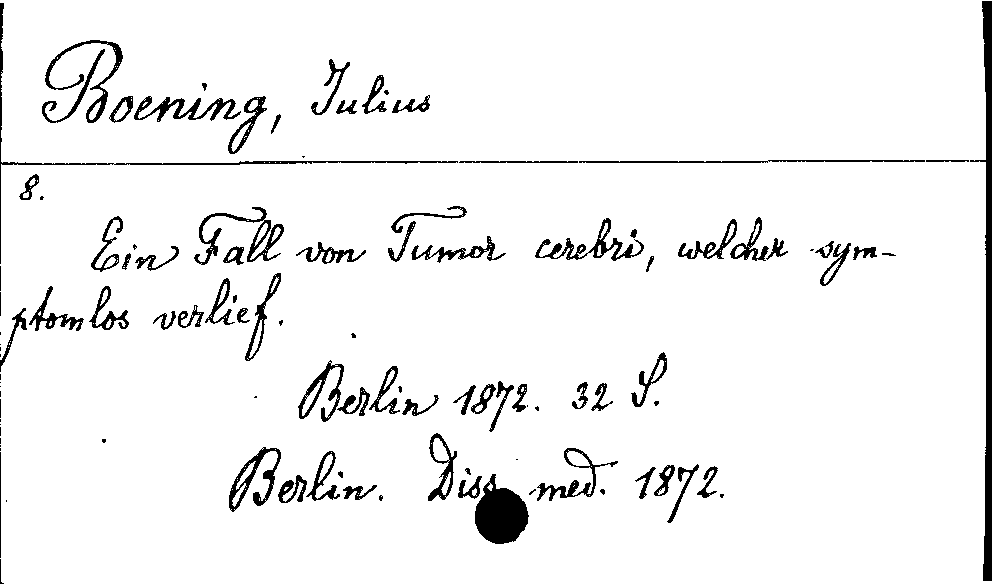 Boening, Julius
8.
Ein Fall von Tumor cerebri, welcher sym-
ptomlos verlief.
Berlin 1872. 32 S.
Berlin. Diss. med. 1872.